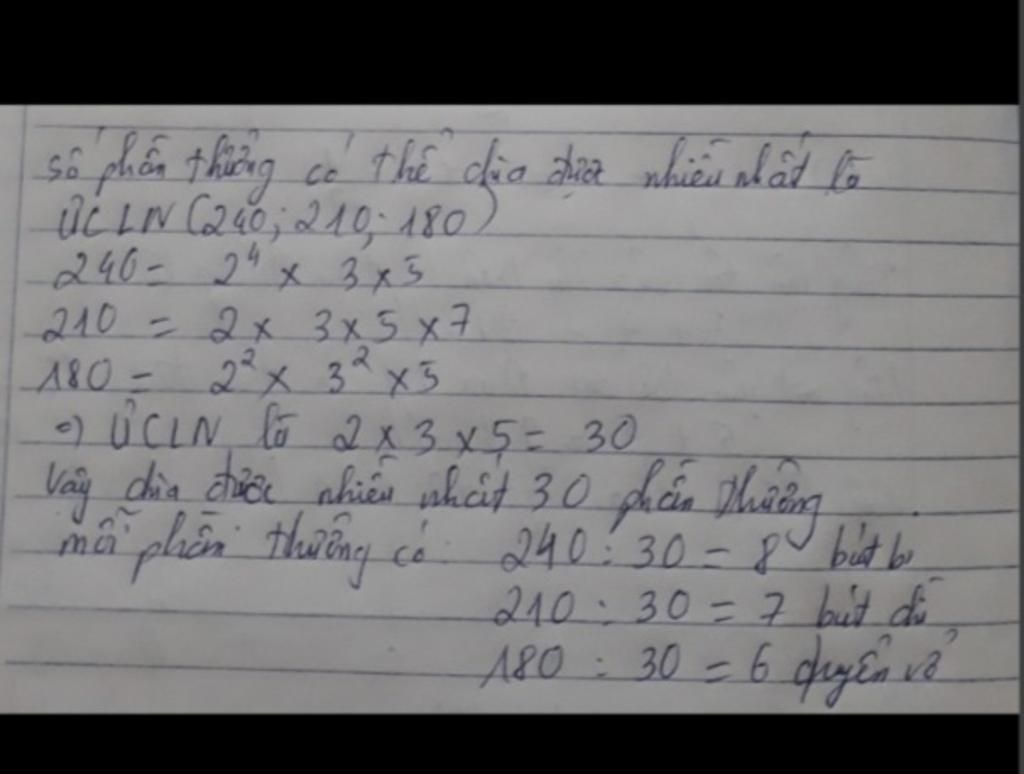 số phần thưởng có thể chia được nhiều nhất là
ƯCLN (240; 210; 180)
240 = 2⁴ × 3 × 5
210 = 2 × 3 × 5 × 7
180 = 2² × 3² × 5
=) ƯCLN là 2 × 3 × 5 = 30
Vậy chia được nhiều nhất 30 phần thưởng
mỗi phần thưởng có: 240 : 30 = 8 bút bi
210 : 30 = 7 bút chì
180 : 30 = 6 quyển vở